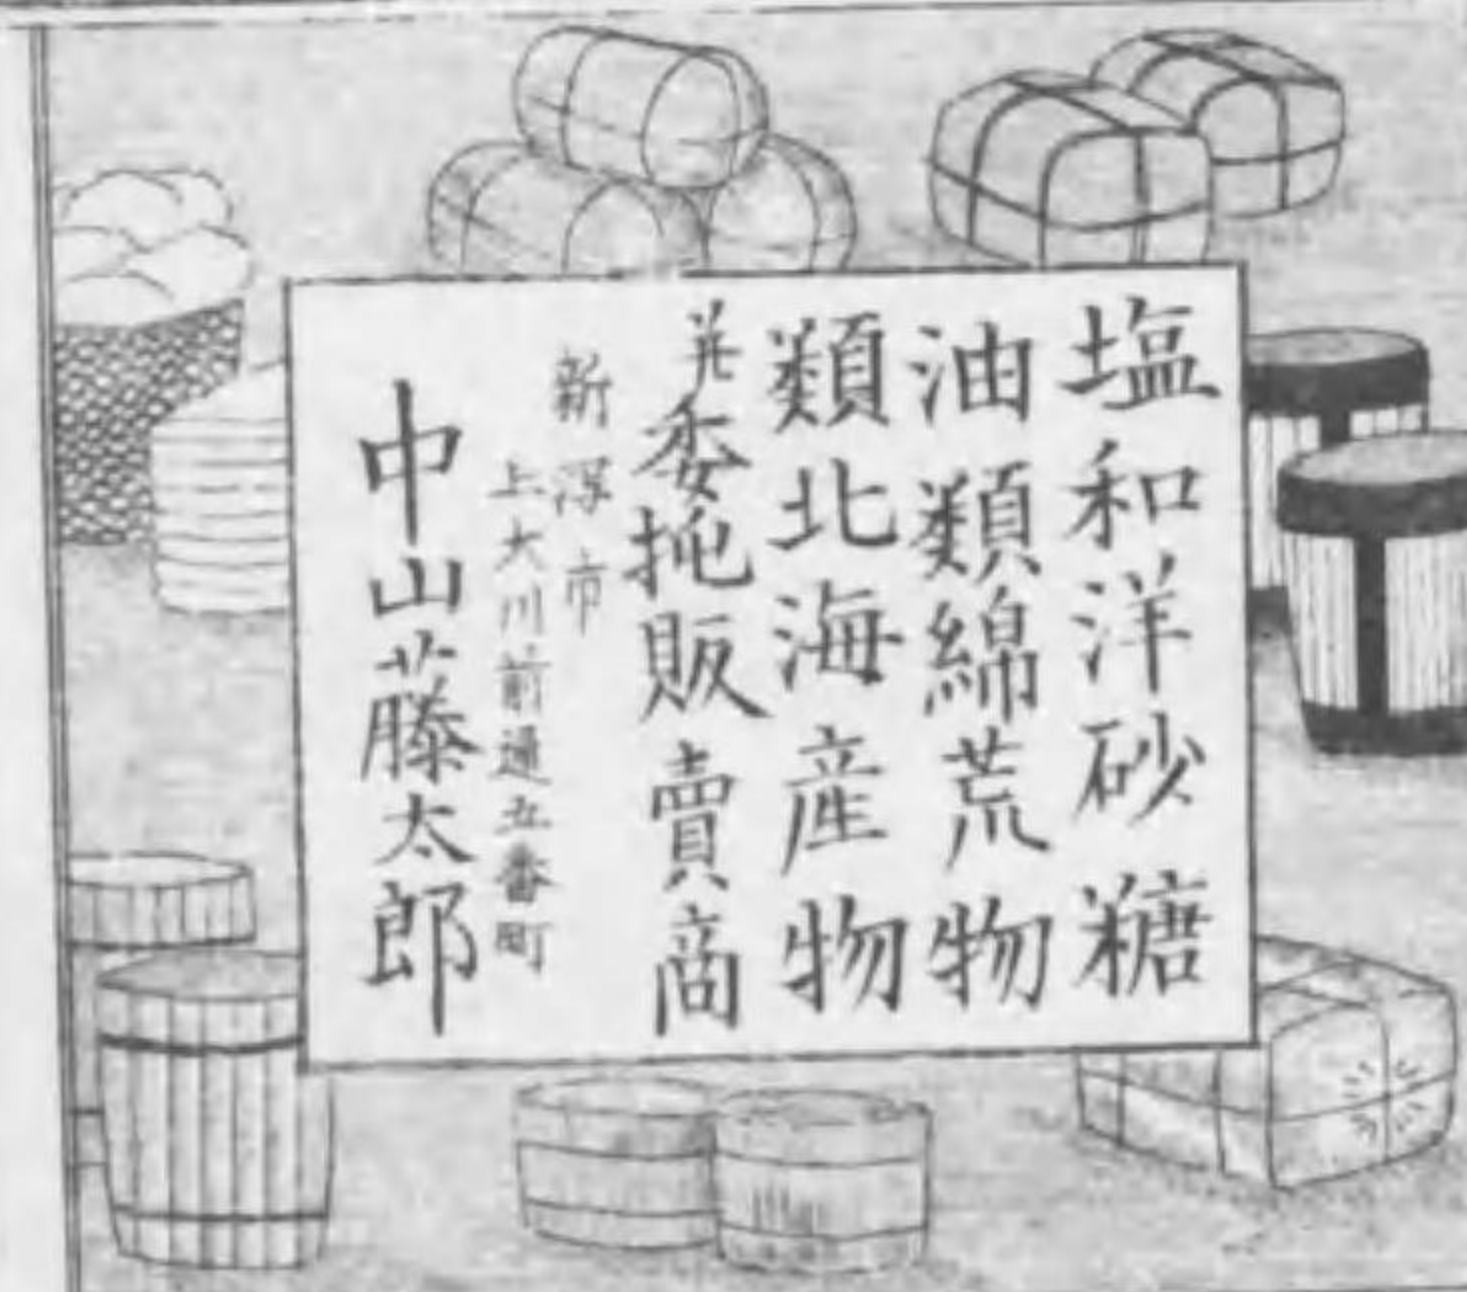 塩和洋砂糖
油類綿荒物
類北海産物
并委托販賣商
新潟市
上大川前通五番町
中山藤太郎